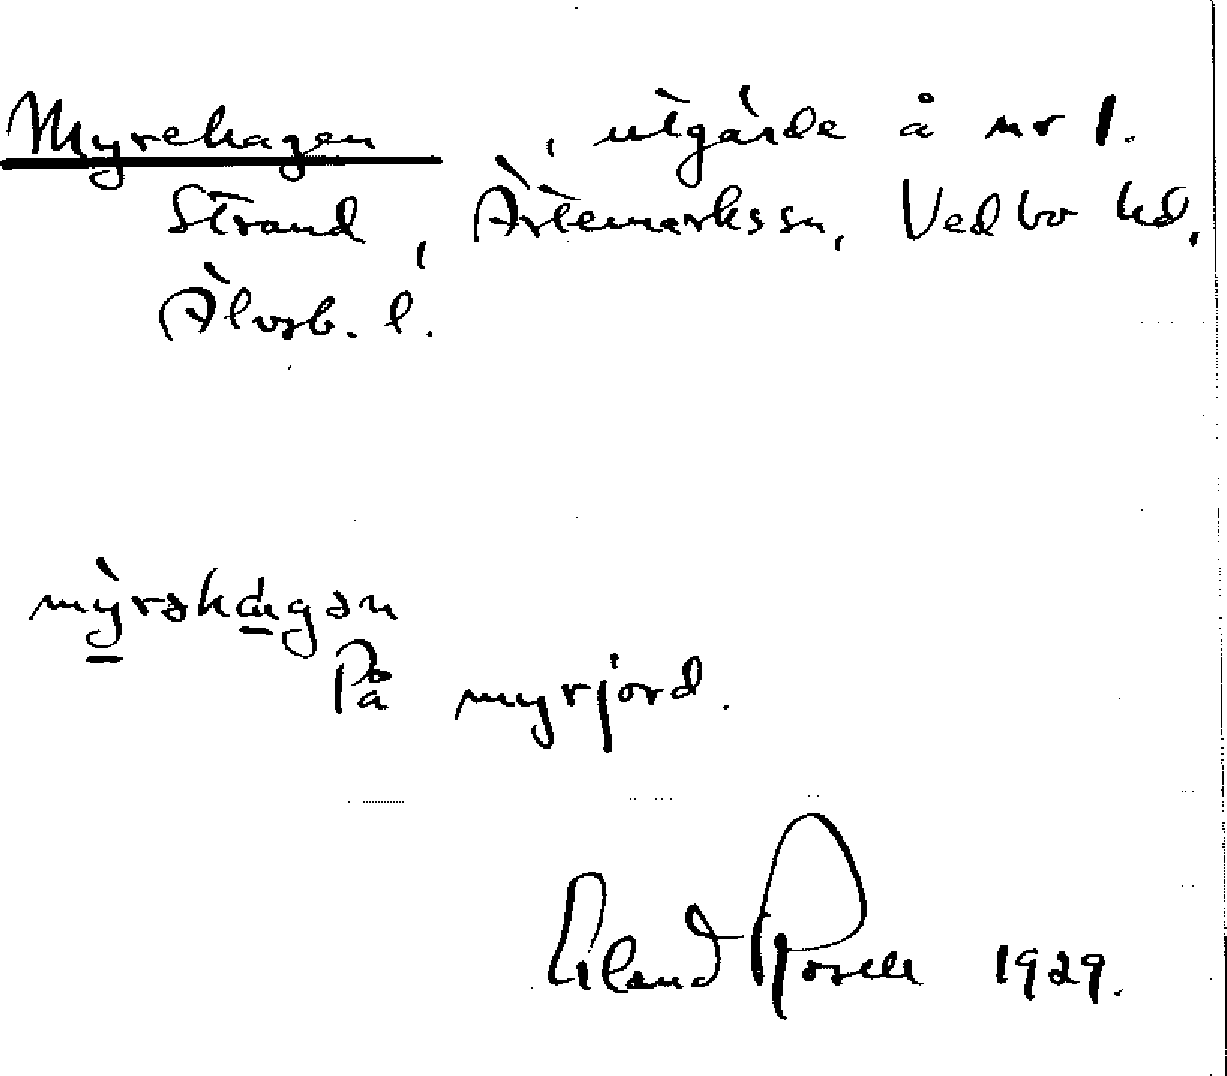 Myrehagen, utgärde å nr 1.
Strand, Ärtemarkssn, Vedbo hd,
Älvsb. l.
mỳrəhàgən
På myrjord.
Erland Rosell 1929.